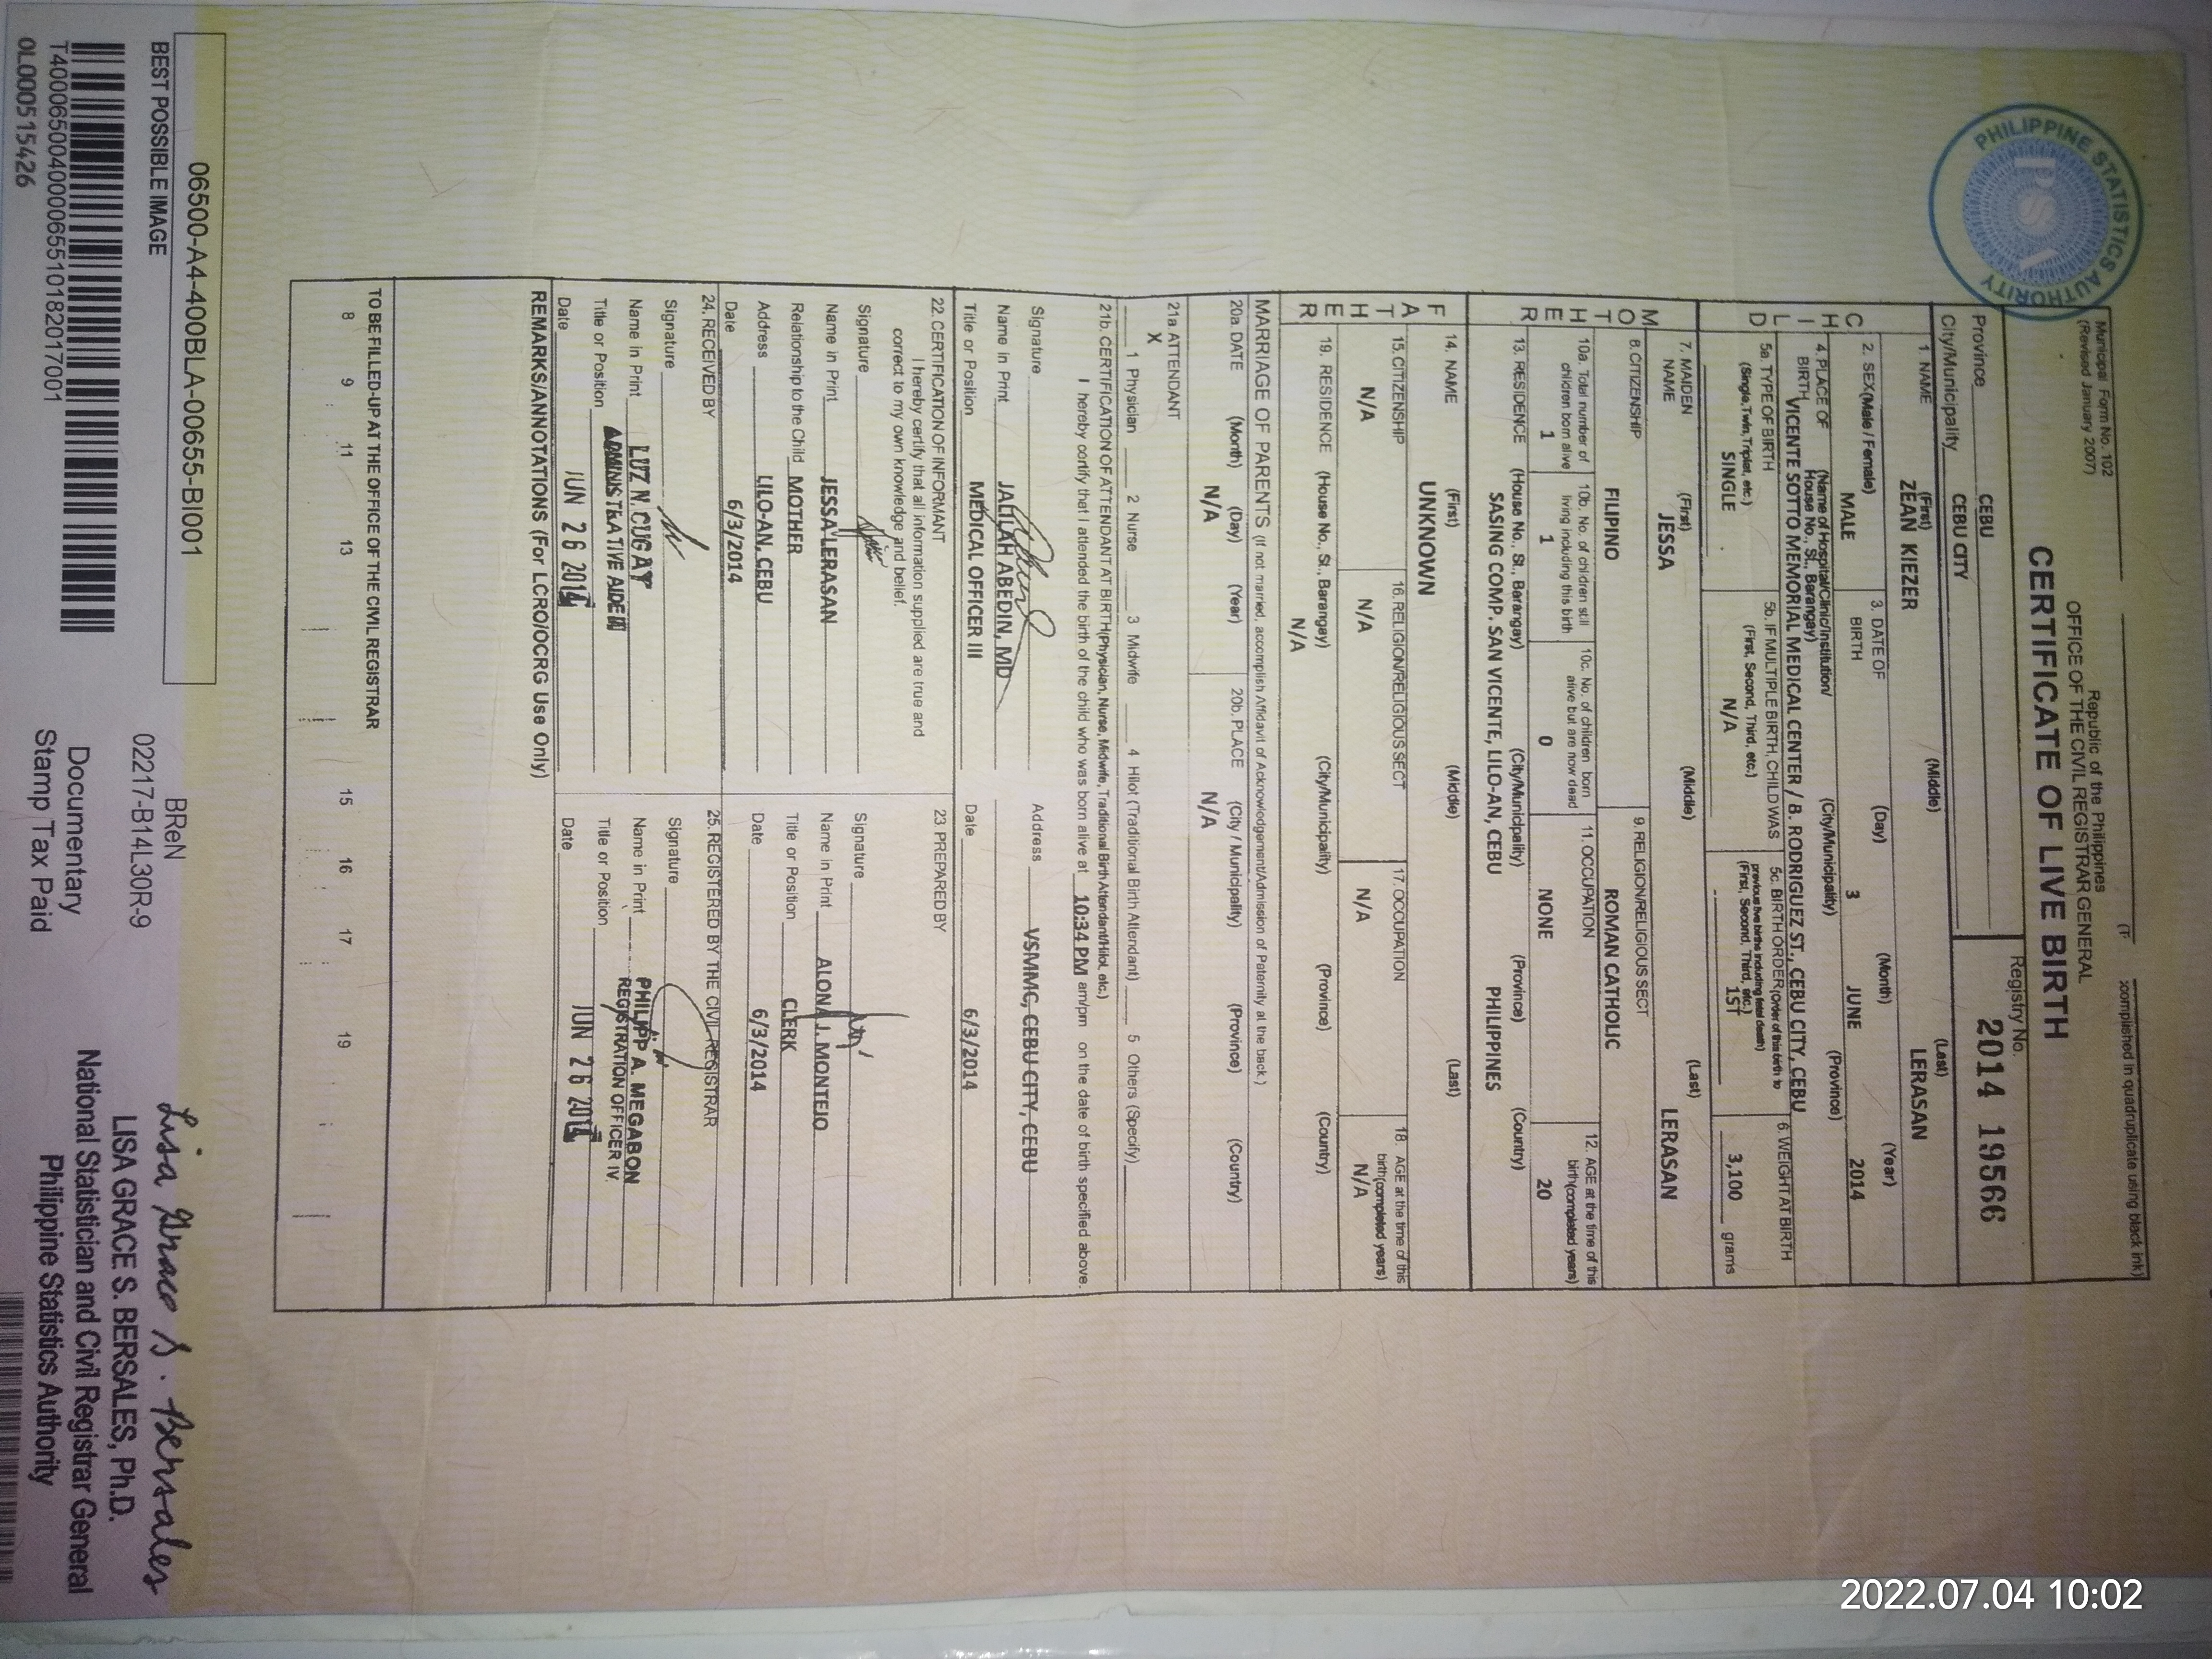 Municipal Form No. 102
(Revised January 2007)
accomplished in quadruplicate using black ink)
Republic of the Philippines
OFFICE OF THE CIVIL REGISTRAR GENERAL
CERTIFICATE OF LIVE BIRTH
PHILIPPINE STATISTICS AUTHORITY
PSA
Province CEBU
City/Municipality CEBU CITY
Registry No. 2014 19566
CHILD
1. NAME (First) (Middle) (Last)
ZEAN KIEZER LERASAN
2. SEX(Male / Female) 3. DATE OF BIRTH (Day) (Month) (Year)
MALE 3 JUNE 2014
4. PLACE OF BIRTH (Name of Hospital/Clinic/Institution/ House No., St., Barangay) (City/Municipality) (Province)
VICENTE SOTTO MEMORIAL MEDICAL CENTER / B. RODRIGUEZ ST., CEBU CITY, CEBU
5a. TYPE OF BIRTH (Single,Twin,Triplet, etc.) SINGLE
5b. IF MULTIPLE BIRTH, CHILD WAS (First, Second, Third, etc.) N/A
5c. BIRTH ORDER(Order of this birth to previous live births including fetal death) (First, Second, Third, etc.) 1ST
6. WEIGHT AT BIRTH 3,100 grams
MOTHER
7. MAIDEN NAME (First) (Middle) (Last)
JESSA LERASAN
8. CITIZENSHIP FILIPINO
9. RELIGION/RELIGIOUS SECT ROMAN CATHOLIC
10a. Total number of children born alive 1
10b. No. of children still living including this birth 1
10c. No. of children born alive but are now dead 0
11. OCCUPATION NONE
12. AGE at the time of this birth(completed years) 20
13. RESIDENCE (House No., St., Barangay) (City/Municipality) (Province) (Country)
SASING COMP. SAN VICENTE, LILO-AN, CEBU PHILIPPINES
FATHER
14. NAME (First) (Middle) (Last)
UNKNOWN
15. CITIZENSHIP N/A
16. RELIGION/RELIGIOUS SECT N/A
17. OCCUPATION N/A
18. AGE at the time of this birth(completed years) N/A
19. RESIDENCE (House No., St., Barangay) (City/Municipality) (Province) (Country)
N/A
MARRIAGE OF PARENTS (If not married, accomplish Affidavit of Acknowledgement/Admission of Paternity at the back.)
20a. DATE (Month) (Day) (Year) N/A
20b. PLACE (City / Municipality) (Province) (Country) N/A
21a. ATTENDANT
X
1 Physician 2 Nurse 3 Midwife 4 Hilot (Traditional Birth Attendant) 5 Others (Specify)
21b. CERTIFICATION OF ATTENDANT AT BIRTH(Physician, Nurse, Midwife, Traditional Birth Attendant/Hilot, etc.)
I hereby certify that I attended the birth of the child who was born alive at 10:34 PM am/pm on the date of birth specified above.
Signature
Address VSMMC, CEBU CITY, CEBU
Name in Print JALILAH ABEDIN, MD
Title or Position MEDICAL OFFICER III
Date 6/3/2014
22. CERTIFICATION OF INFORMANT
I hereby certify that all information supplied are true and
correct to my own knowledge and belief.
Signature
Name in Print JESSA LERASAN
Relationship to the Child MOTHER
Address LILO-AN, CEBU
Date 6/3/2014
23 PREPARED BY
Signature
Name in Print ALONA J. MONTEJO
Title or Position CLERK
Date 6/3/2014
24. RECEIVED BY
Signature
Name in Print LUZ N. CUGAY
Title or Position ADMINISTRATIVE AIDE
Date JUN 26 2014
25. REGISTERED BY THE CIVIL REGISTRAR
Signature
Name in Print PHILIPP A. MEGABON
Title or Position REGISTRATION OFFICER IV
Date JUN 26 2014
REMARKS/ANNOTATIONS (For LCRO/OCRG Use Only)
TO BE FILLED-UP AT THE OFFICE OF THE CIVIL REGISTRAR
8 9 11 13 15 16 17 19
06500-A4-400BLA-00655-BI001
BEST POSSIBLE IMAGE
T400065004000065510182017001
OL000515426
BReN
02217-B14L30R-9
Documentary
Stamp Tax Paid
Lisa Grace S. Bersales
LISA GRACE S. BERSALES, Ph.D.
National Statistician and Civil Registrar General
Philippine Statistics Authority
2022.07.04 10:02